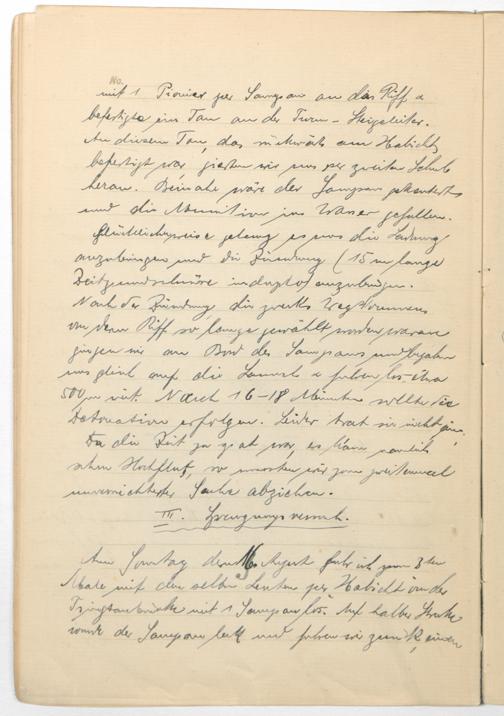 No.
mit 1 Pionier per Sampan an das Riff u
befestigte ein Tau an der Turm-Steigeleiter.
An diesem Tau, das rückwärts am Habicht
befestigt war, gierten wir uns per zweiten Schub
heran. Beinahe wäre der Sampan gekentert
und die Munition ins Wasser gefallen.
Glücklicherweise gelang es uns die Ladung
anzubringen und die Zündung (15 m lange
Zeitzündschnüre) anzubringen.
Nach der Zündung die zwecks Wegkommens
von dem Riff so lange gewählt worden waren
gingen wir an Bord des Sampans und begaben
uns gleich auf die Launch u fuhren los etwa
500 m weit. Nach 16-18 Minuten sollte die
Detonation erfolgen. Leider trat sie nicht ein.
Da die Zeit zu spät war, es kam nämlich
schon Hochflut, so mussten wir zum zweitenmal
unverrichteter Sache abziehen.
III. Sprengungsversuch.
Am Sonntag den 16 August fuhr ich zum 3ten
Male mit den selben Leuten per Habicht von der
Tsingtaubrücke mit 1 Sampan los. Auf halber Strecke
wurde der Sampan leck und fuhren wir zurück, einen